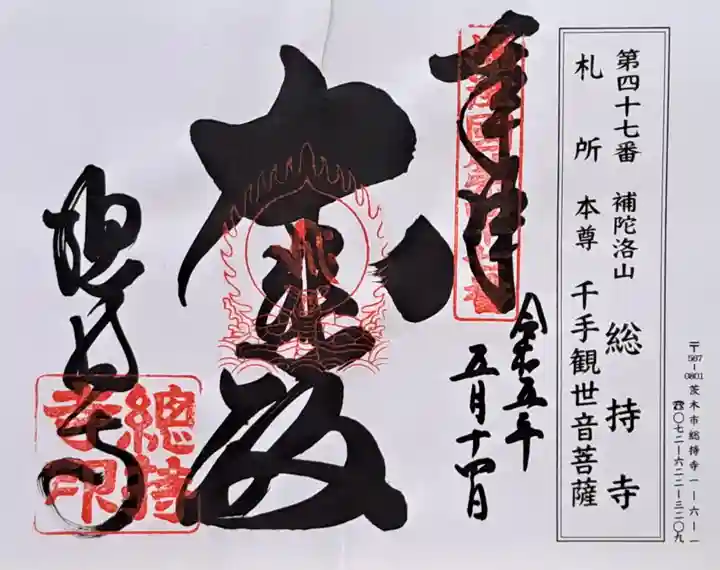 第四十七番 補陀洛山 総持寺
札所 本尊 千手観世音菩薩
〒567-0801 茨木市総持寺一-六-一
☎〇七二-六二二-三二〇九
奉拝
令和五年
五月十四日
大悲殿
総持寺
總持
寺印